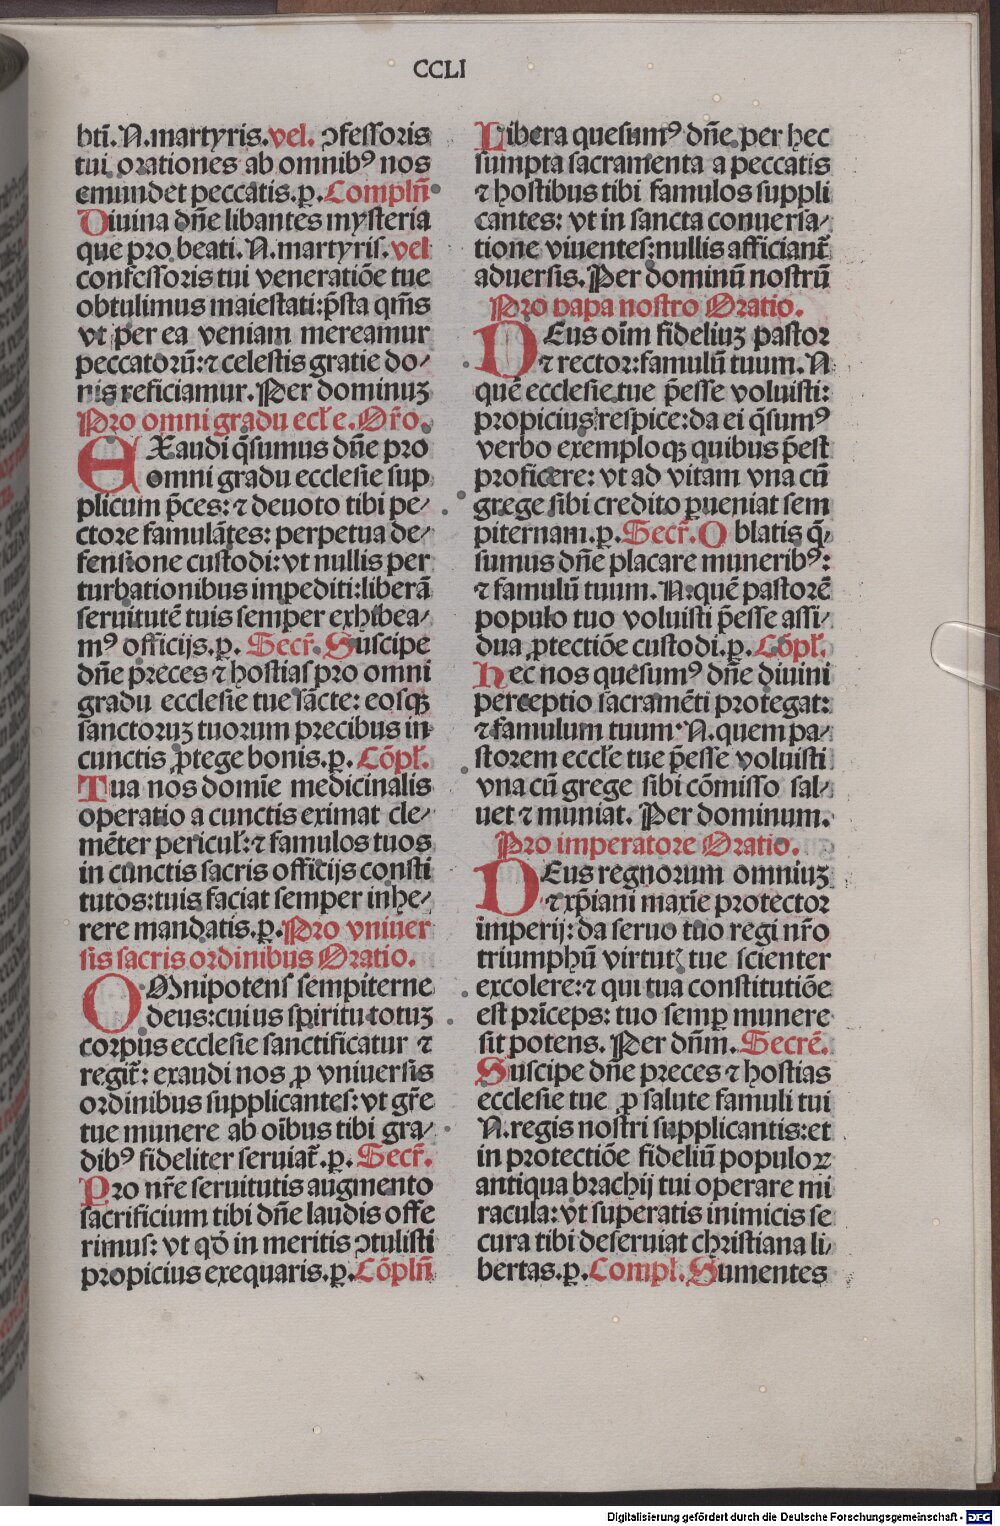 CCLI
bti. N. martyris. vel. ↄfessoris
tui orationes ab omnibꝰ nos
emundet peccatis. ꝑ. Complñ
Diuina dñe libantes mysteria
que pro beati. N. martyris. vel
confessoris tui veneratiõe tue
obtulimus maiestati: p̃sta q̃ms
vt per ea veniam mereamur
peccatorũ: ⁊ celestis gratie do⸗
nis reficiamur. Per dominuꝫ
Pro omni gradu eccl̃e. Or̃o.
EXaudi q̃sumus dñe pro
omni gradu ecclesie sup
plicum p̃ces: ⁊ deuoto tibi pe⸗
ctore famulãtes: perpetua de⸗
fensione custodi: vt nullis per
turbationibus impediti: liberã
seruitutẽ tuis semper exhibea⸗
mꝰ officijs. ꝑ. Secr̃. Suscipe
dñe preces ⁊ hostias pro omni
gradu ecclesie tue sãcte: eosqꝫ
sanctoruꝫ tuorum precibus in
cunctis ꝓtege bonis. ꝑ. Cõpl̃.
Tua nos domĩe medicinalis
operatio a cunctis eximat cle⸗
mẽter pericul̃: ⁊ famulos tuos
in cunctis sacris officijs consti
tutos: tuis faciat semper inhe⸗
rere mandatis. ꝑ. Pro vniuer
sis sacris ordinibus Oratio.
OMnipotens sempiterne
deus: cuius spiritu totuꝫ
corpus ecclesie sanctificatur ⁊
regit̃: exaudi nos ꝓ vniuersis
ordinibus supplicantes: vt gr̃e
tue munere ab oĩbus tibi gra⸗
dibꝰ fideliter seruiat̃. ꝑ. Secr̃.
Pro nr̃e seruitutis augmento
sacrificium tibi dñe laudis offe
rimus: vt qď in meritis ↄtulisti
propicius exequaris. ꝑ. Cõplñ
Libera quesumꝰ dñe per hec
sumpta sacramenta a peccatis
⁊ hostibus tibi famulos suppli
cantes: vt in sancta conuersa⸗
tione viuentes: nullis afficiant̃
aduersis. Per dominũ nostrũ
Pro papa nostro Oratio.
DEus oĩm fideliuꝫ pastor
⁊ rector: famulũ tuum. N
quẽ ecclesie tue p̃esse voluisti:
propicius respice: da ei q̃sumꝰ
verbo exemploqꝫ quibus p̃est
proficere: vt ad vitam vna cũ
grege sibi credito ꝑueniat sem
piternam. ꝑ. Secr̃. Oblatis q̃⸗
sumus dñe placare muneribꝰ:
⁊ famulũ tuum. N. quẽ pastorẽ
populo tuo voluisti p̃esse assi⸗
dua ꝓtectiõe custodi. ꝑ. Cõpl̃.
Hec nos quesumꝰ dñe diuini
perceptio sacramẽti protegat:
⁊ famulum tuum N. quem pa⸗
storem eccl̃e tue p̃esse voluisti
vna cũ grege sibi cõmisso sal⸗
uet ⁊ muniat. Per dominum.
Pro imperatore Oratio.
DEus regnorum omniuꝫ
⁊ xp̃iani maxĩe protector
imperij: da seruo tuo regi nr̃o
triumphũ virtutꝭ tue scienter
excolere: ⁊ qui tua constitutiõe
est prĩceps: tuo semꝑ munere
sit potens. Per dñm. Secrẽ.
Suscipe dñe preces ⁊ hostias
ecclesie tue ꝓ salute famuli tui
N. regis nostri supplicantis: et
in protectiõe fideliũ populoꝝ
antiqua brachij tui operare mi
racula: vt superatis inimicis se
cura tibi deseruiat christiana li⸗
bertas. ꝑ. Compl. Sumentes
Digitalisierung gefördert durch die Deutsche Forschungsgemeinschaft - DFG